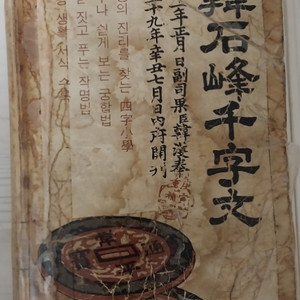 韓石峰千字文
年正月 日副司果臣韓濩奉
十九年辛丑七月日內府開刊
의 진리를 찾는 四字小學
나 쉽게 보는 궁합법
짓고 푸는 작명법
생활 서식